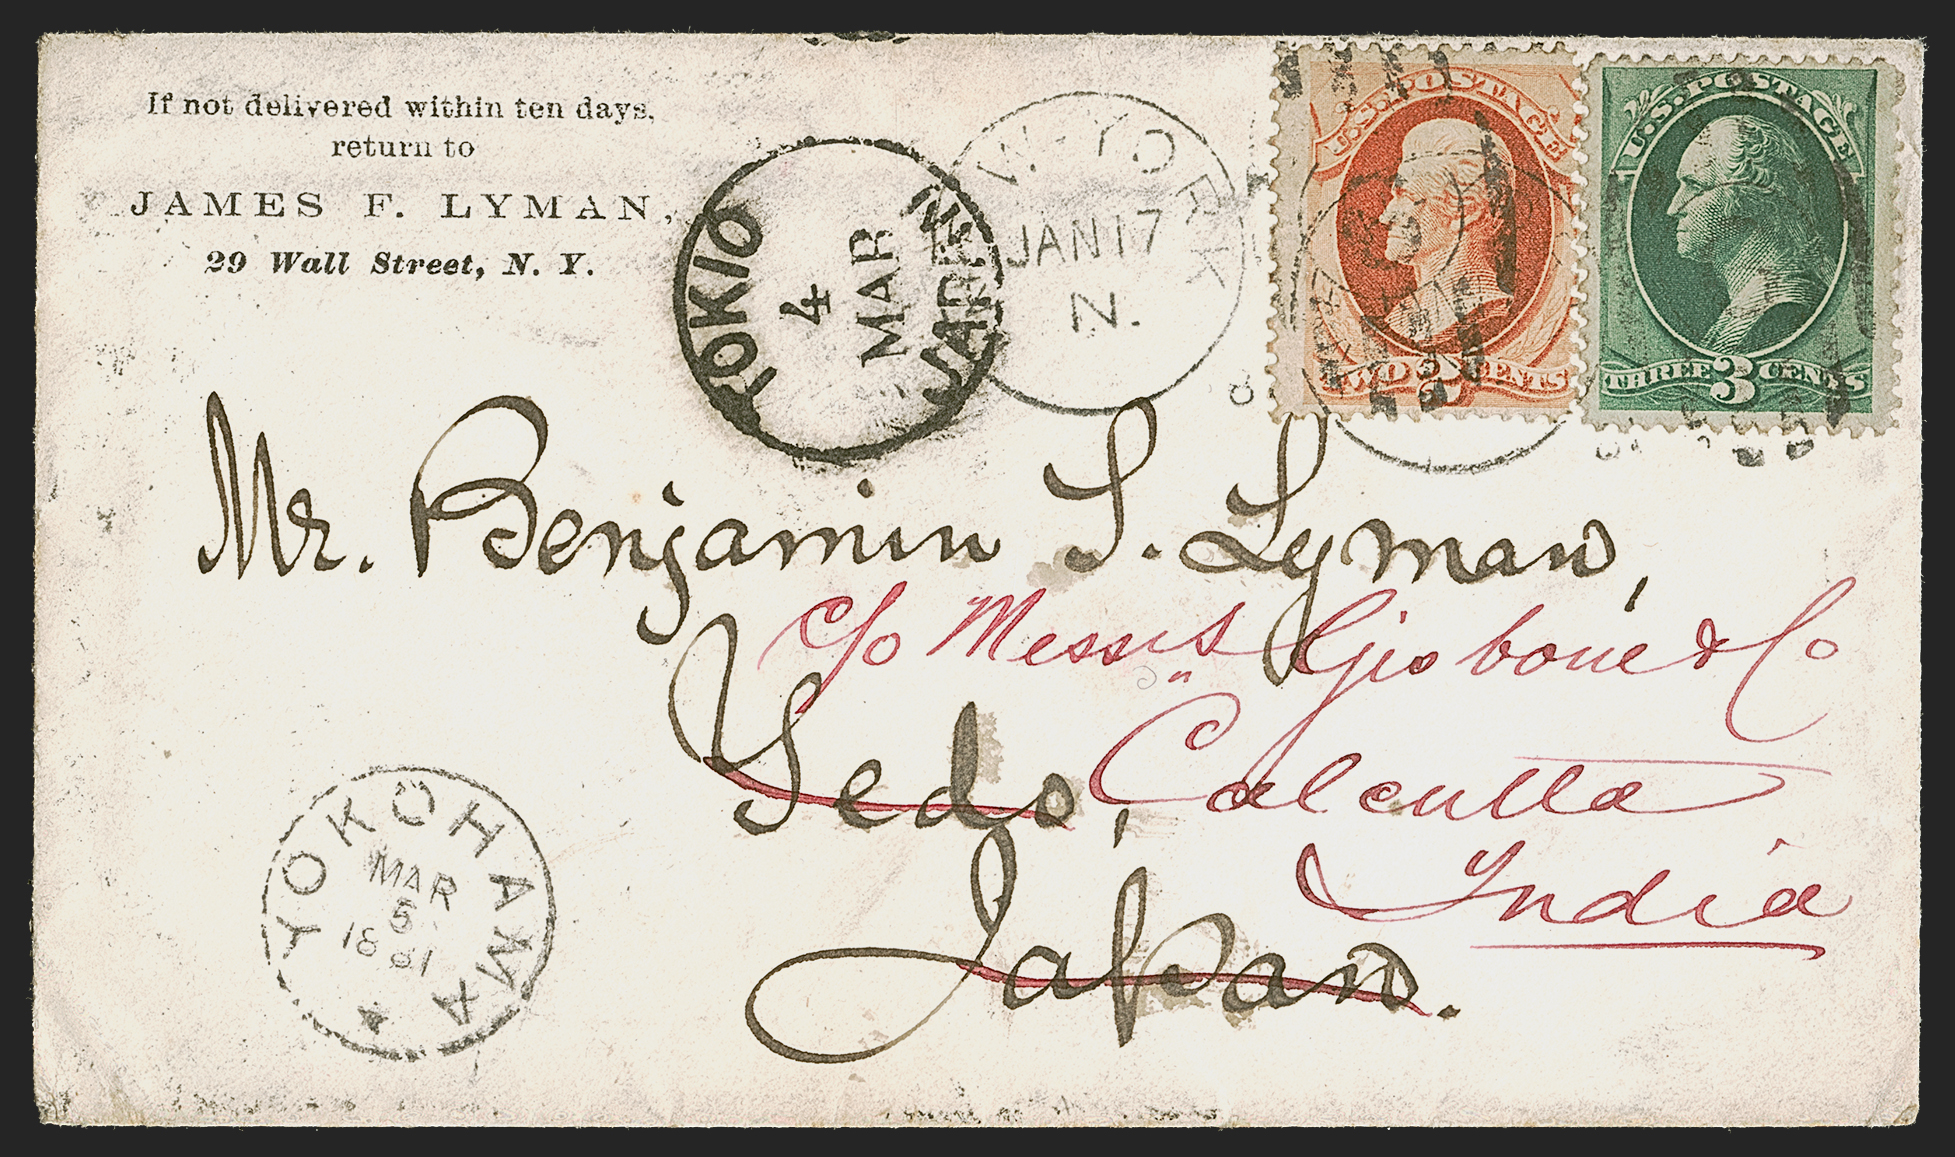 If not delivered within ten days,
return to
JAMES F. LYMAN,
29 Wall Street, N. Y.
TOKIO
4
MAR
JAPAN
W-YORK
JAN 17
N.
U.S. POSTAGE
TWO 2 CENTS
U.S. POSTAGE
THREE 3 CENTS
Mr. Benjamin S. Lyman,
c/o Messrs Gisbone & Co
Yedo,
Calcutta
India
Japan.
YOKOHAMA
MAR
5
1881